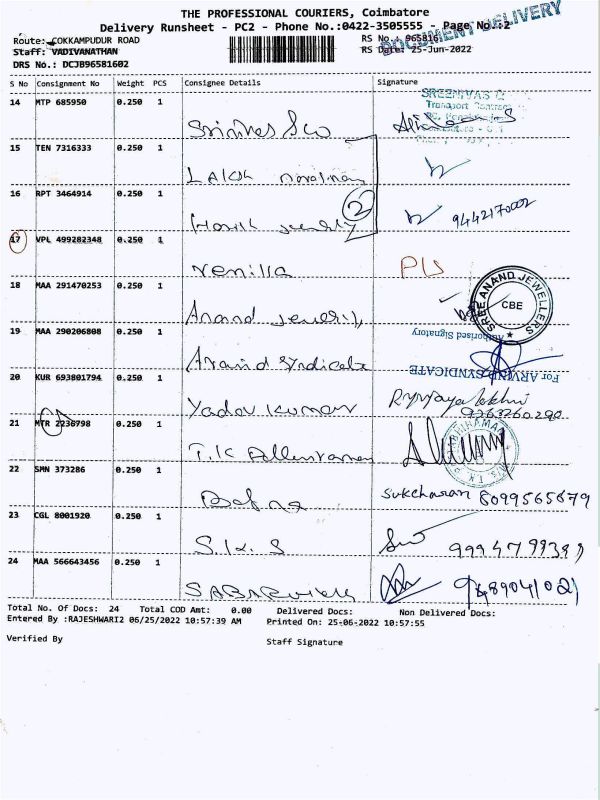 THE PROFESSIONAL COURIERS, Coimbatore
Delivery Runsheet - PC2 - Phone No.:0422-3505555 - Page No.:2
DOCUMENT DELIVERY
Route: COKKAMPUDUR ROAD
RS No.: 965816
Staff: VADIVANATHAN
RS Date: 25-Jun-2022
DRS No.: DCJB96581602
S No Consignment No Weight PCS Consignee Details Signature
14 MTP 685950 0.250 1
SREENIVAS
Transport
15 TEN 7316333 0.250 1
16 RPT 3464914 0.250 1
2
9442170002
17 VPL 499282348 0.250 1
Venilla
18 MAA 291470253 0.250 1
Anand
SREE ANAND JEWELLERS
CBE
Authorised Signatory
19 MAA 290206808 0.250 1
Aravind Syndicate
For ARVIND SYNDICATE
20 KUR 693801794 0.250 1
Yadav Kumar
9363260290
21 MTR 2236798 0.250 1
T.K
22 SMN 373286 0.250 1
Sukcharan 8099565679
23 CGL 8001920 0.250 1
S.K.S
24 MAA 566643456 0.250 1
Total No. Of Docs: 24 Total COD Amt: 0.00 Delivered Docs: Non Delivered Docs:
Entered By :RAJESHWARI2 06/25/2022 10:57:39 AM Printed On: 25-06-2022 10:57:55
Verified By
Staff Signature